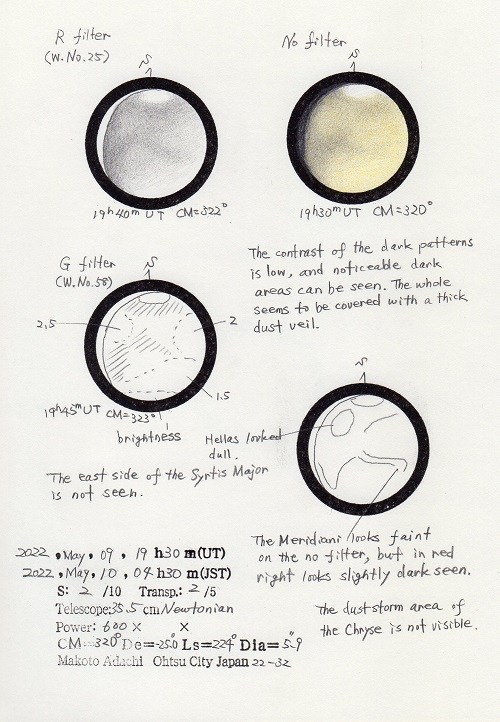 R filter
(W.No.25)
S
19h40m UT CM=322°
No filter
S
19h30m UT CM=320°
G filter
(W.No.58)
S
2.5
2
1.5
19h45m UT CM=323°
brightness
The contrast of the dark patterns
is low, and noticeable dark
areas can be seen. The whole
seems to be covered with a thick
dust veil.
S
Hellas looked
dull.
The east side of the Syrtis Major
is not seen.
The Meridiani looks faint
on the no filter, but in red
right looks slightly dark seen.
The dust storm area of
the Chryse is not visible.
2022, May, 09, 19 h30 m(UT)
2022, May, 10, 04 h30 m(JST)
S: 2 /10 Transp.: 2 /5
Telescope: 35.5 cm Newtonian
Power: 600 × ×
CM=320° De=-25.0 Ls=224° Dia=5".9
Makoto Adachi Ohtsu City Japan 22-32